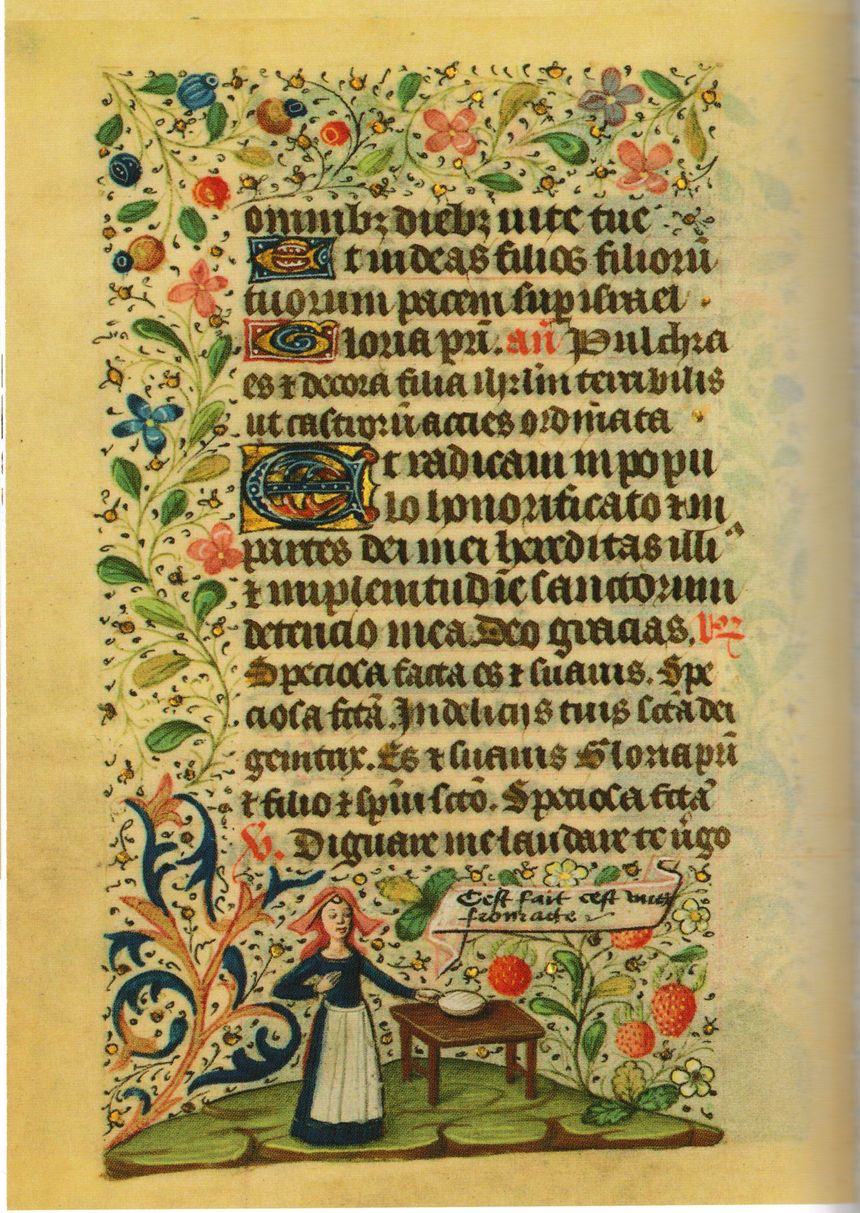 omnibꝫ diebꝫ uite tue
Et uideas filios filiorū
tuorum pacem suꝑ israel
Gloria pr̄i. an̄ Pulchra
es ⁊ decora filia ihrl̄m terribilis
ut castrorū acies ordinata
Et radicaui in popu
lo honorificato ⁊ in
partes dei mei hereditas illi
⁊ in plenitudīe sanctorum
detencio mea. Deo gracias. R
Speciosa facta es ⁊ suauis. Spe
ciosa fctā. In deliciis tuis sctā dei
genitrix. Es ⁊ suauis Gloria pr̄i
⁊ filio ⁊ sp̄ui sctō. Speciosa fctā
V. Dignare me laudare te ūgo
Cest fait cest
fromage